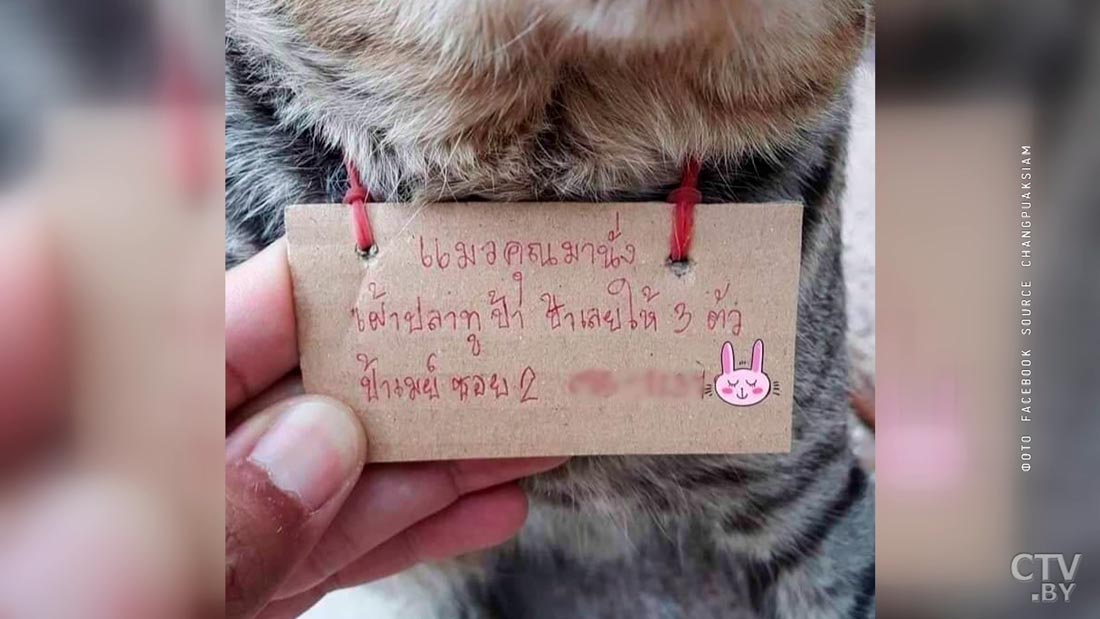 แมวคุณมานั่ง
เฝ้าปลาทูป้า ป้าเลยให้ 3 ตัว
ป้าเมย์ ซอย 2
ФОТО FACEBOOK SOURCE CHANGPUAKSIAM
CTV
.BY